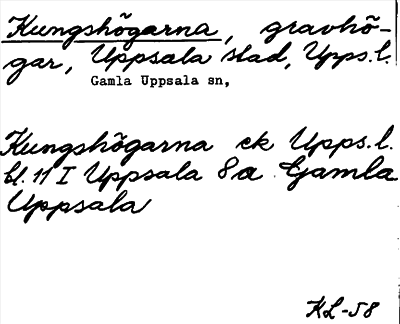 Kungshögarna, gravhö-
gar, Uppsala stad, Upps.l.
Gamla Uppsala sn,
Kungshögarna ek Upps.l.
bl. 11 I Uppsala 8a Gamla
Uppsala
KL-58